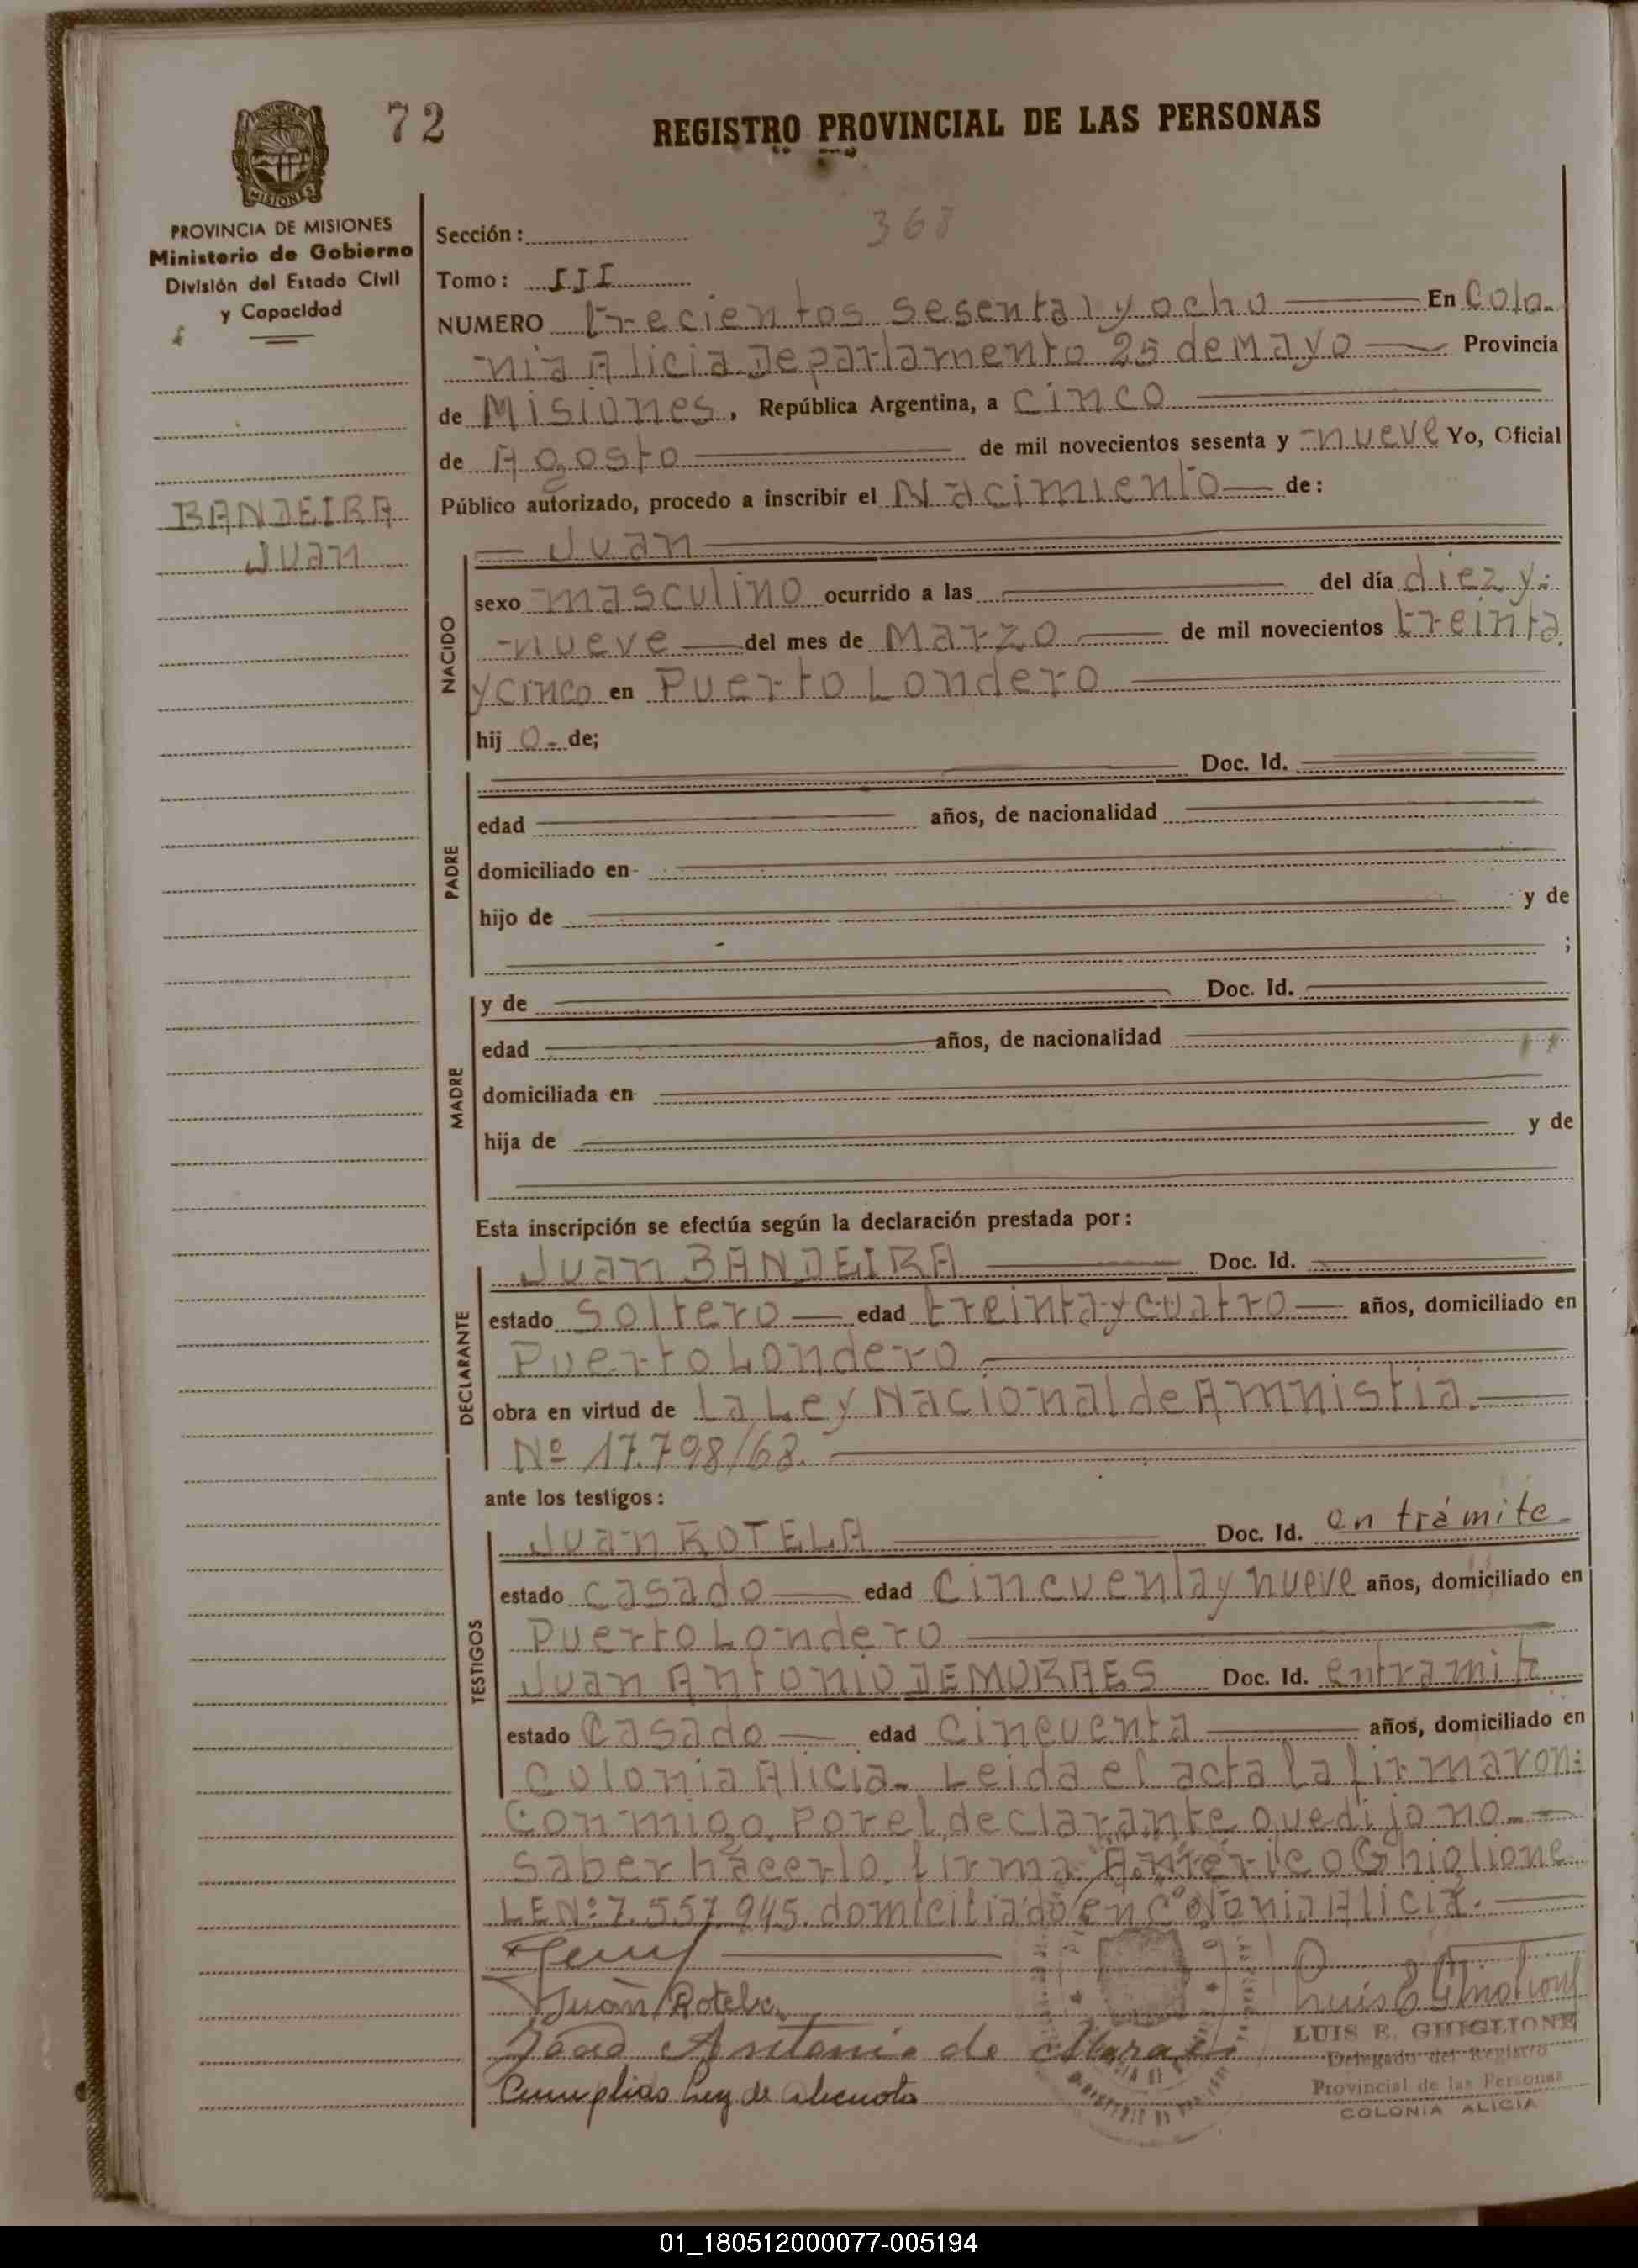 72
REGISTRO PROVINCIAL DE LAS PERSONAS
MISIONES
PROVINCIA DE MISIONES
Ministerio de Gobierno
División del Estado Civil
y Capacidad
BANDEIRA
Juan
368
Sección:
Tomo: III
NUMERO trecientos sesenta y ocho En Colo-
nia Alicia Departamento 25 de Mayo Provincia
de Misiones, República Argentina, a cinco
de Agosto de mil novecientos sesenta y nueve Yo, Oficial
Público autorizado, procedo a inscribir el Nacimiento de:
NACIDO
Juan
sexo masculino ocurrido a las del día diez y
nueve del mes de Marzo de mil novecientos treinta
y cinco en Puerto Londero
hij o de;
PADRE
Doc. Id.
edad años, de nacionalidad
domiciliado en
hijo de y de
;
MADRE
y de Doc. Id.
edad años, de nacionalidad
domiciliada en
hija de y de
Esta inscripción se efectúa según la declaración prestada por:
DECLARANTE
Juan BANDEIRA Doc. Id.
estado Soltero edad treinta y cuatro años, domiciliado en
Puerto Londero
obra en virtud de la Ley Nacional de Amnistia.
Nº 17.798/68.
ante los testigos:
TESTIGOS
Juan ROTELA Doc. Id. en trámite
estado casado edad cincuenta y nueve años, domiciliado en
Puerto Londero
Juan Antonio DE MORAES Doc. Id. en tramite
estado Casado edad cincuenta años, domiciliado en
Colonia Alicia. Leida el acta la firmaron
conmigo. Por el declarante que dijo no
saber hacerlo firma Américo Ghiglione
L E Nº: 7.557.945. domiciliado en Colonia Alicia.
Juan Rotela
Antonio de Moraes
LUIS E. GHIGLIONE
Delegado del Registro
Provincial de las Personas
COLONIA ALICIA
01_180512000077-005194